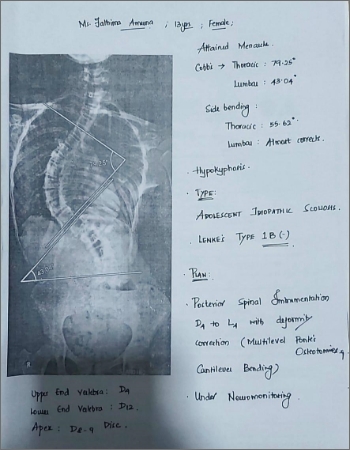 Ms. Fathima Amna ; 13yrs ; Female ;
Attained Menarche
Cobb's → Thoracic : 79.25°
Lumbar : 43.04°
Side bending :
Thoracic : 55.62°
Lumbar : Almost corrects.
• Hypokyphosis.
• TYPE:
ADOLESCENT IDIOPATHIC SCOLIOSIS.
• LENKE'S TYPE 1B (-)
• PLAN:
• Posterior Spinal Instrumentation
D4 to L4 with deformity
correction (Multilevel Ponte's
Osteotomies,
Cantilever Bending)
• Under Neuromonitoring.
R
Upper End Vertebra : D4
Lower End Vertebra : D12.
Apex : D8-9 Disc.